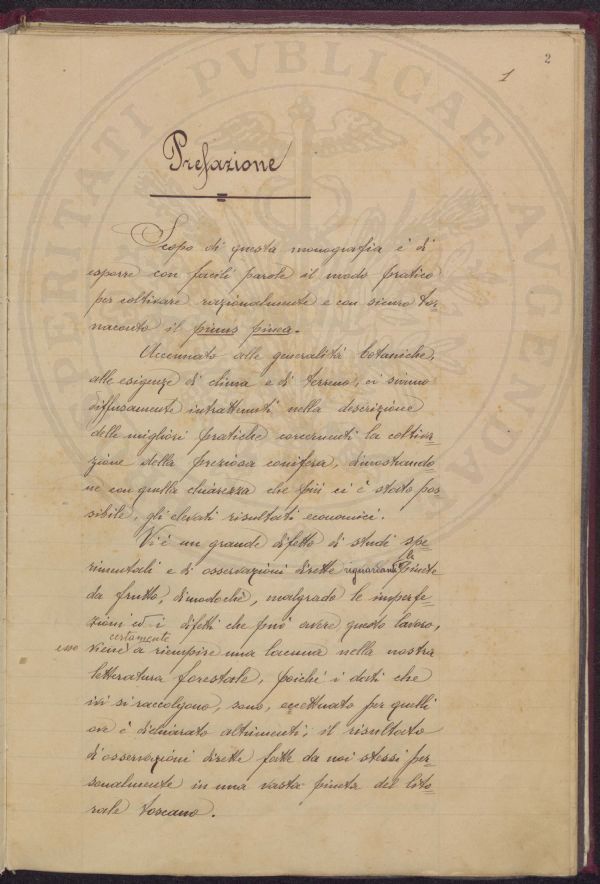 2
1
VERITATI PVBLICAE AVGENDAE
Prefazione
Scopo di questa monografia è di
esporre con facili parole il modo pratico
per coltivare razionalmente e con sicuro tor=
naconto il pinus pinea.
Accennato alle generalità botaniche,
alle esigenze di clima e di terreno, ci siamo
diffusamente intrattenuti nella descrizione
delle migliori pratiche concernenti la coltiva=
zione della preziosa conifera, dimostrando=
ne con quella chiarezza che più ci è stato pos
sibile, gli elevati risultati economici.
Vi è un grande difetto di studi spe=
rimentali e di osservazioni dirette riguardanti le pinete
da frutto, dimodochè, malgrado le imperfe=
zioni ed i difetti che può avere questo lavoro,
esso viene certamente a riempire una lacuna nella nostra
letteratura forestale, poichè i dati che
ivi si raccolgono, sono, eccettuato per quelli
ove è dichiarato altrimenti, il risultato
di osservazioni dirette fatte da noi stessi per=
sonalmente in una vasta pineta del lito=
rale toscano.